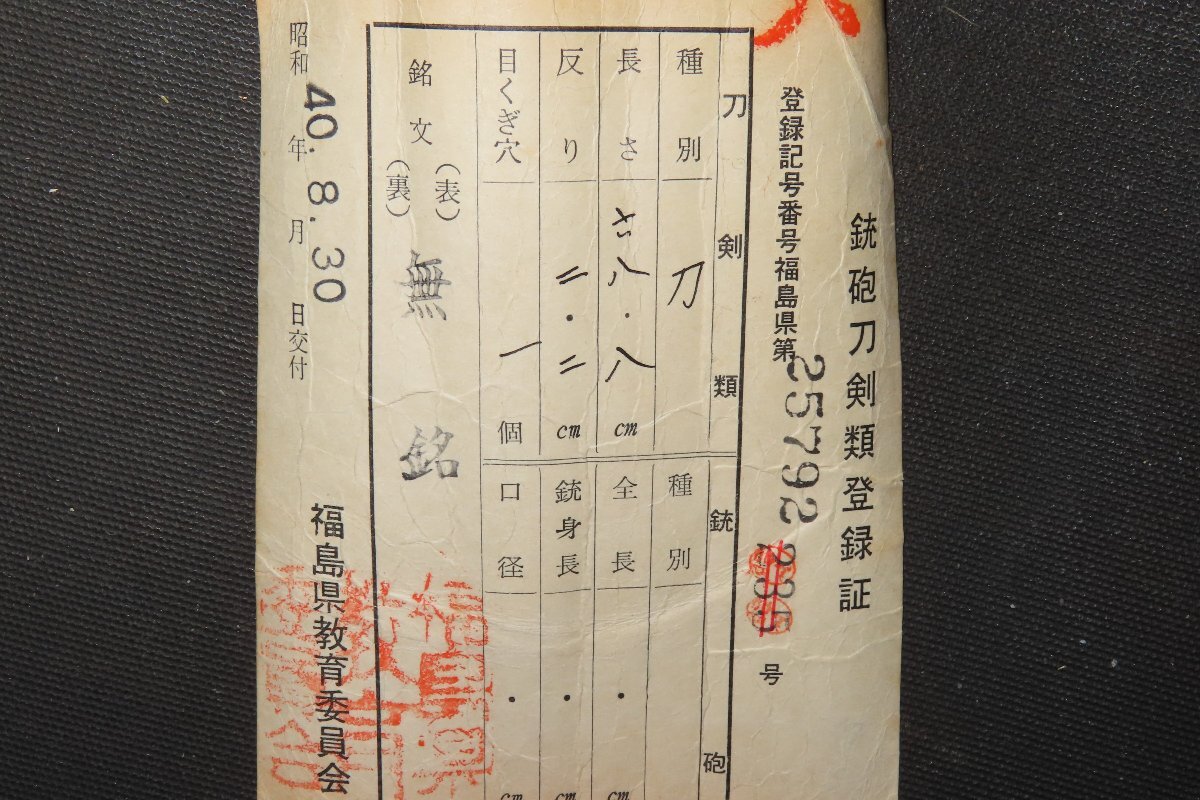 銃砲刀剣類登録証
登録記号番号福島県第25792号
刀剣類
種別 刀
長さ 六八・八cm
反り 二・二cm
目くぎ穴 一個
銘文(表)(裏) 無銘
銃砲
種別
全長 ・cm
銃身長 ・cm
口径 ・cm
昭和40年8.月30日交付
福島県教育委員会